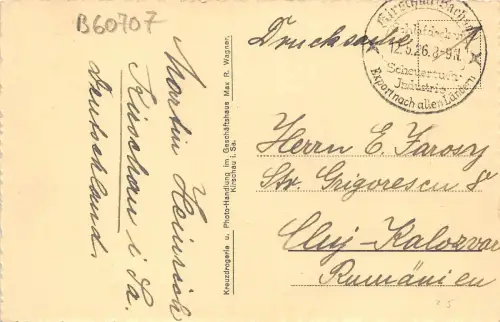 B60707
Martin Heinrich
Kirschau i. Sa.
Deutschland.
Kreuzdrogerie u. Photo-Handlung im Geschäftshaus Max R. Wagner,
Kirschau i. Sa.
Drucksache
Kirschau (Sachsen)
12.5.26.8-9N.
Scheuertuch-
Industrie
Export nach allen Ländern
Herrn E. Farosy
Str. Grigorescu 8
Cluj-Kalozvar
Rumänien